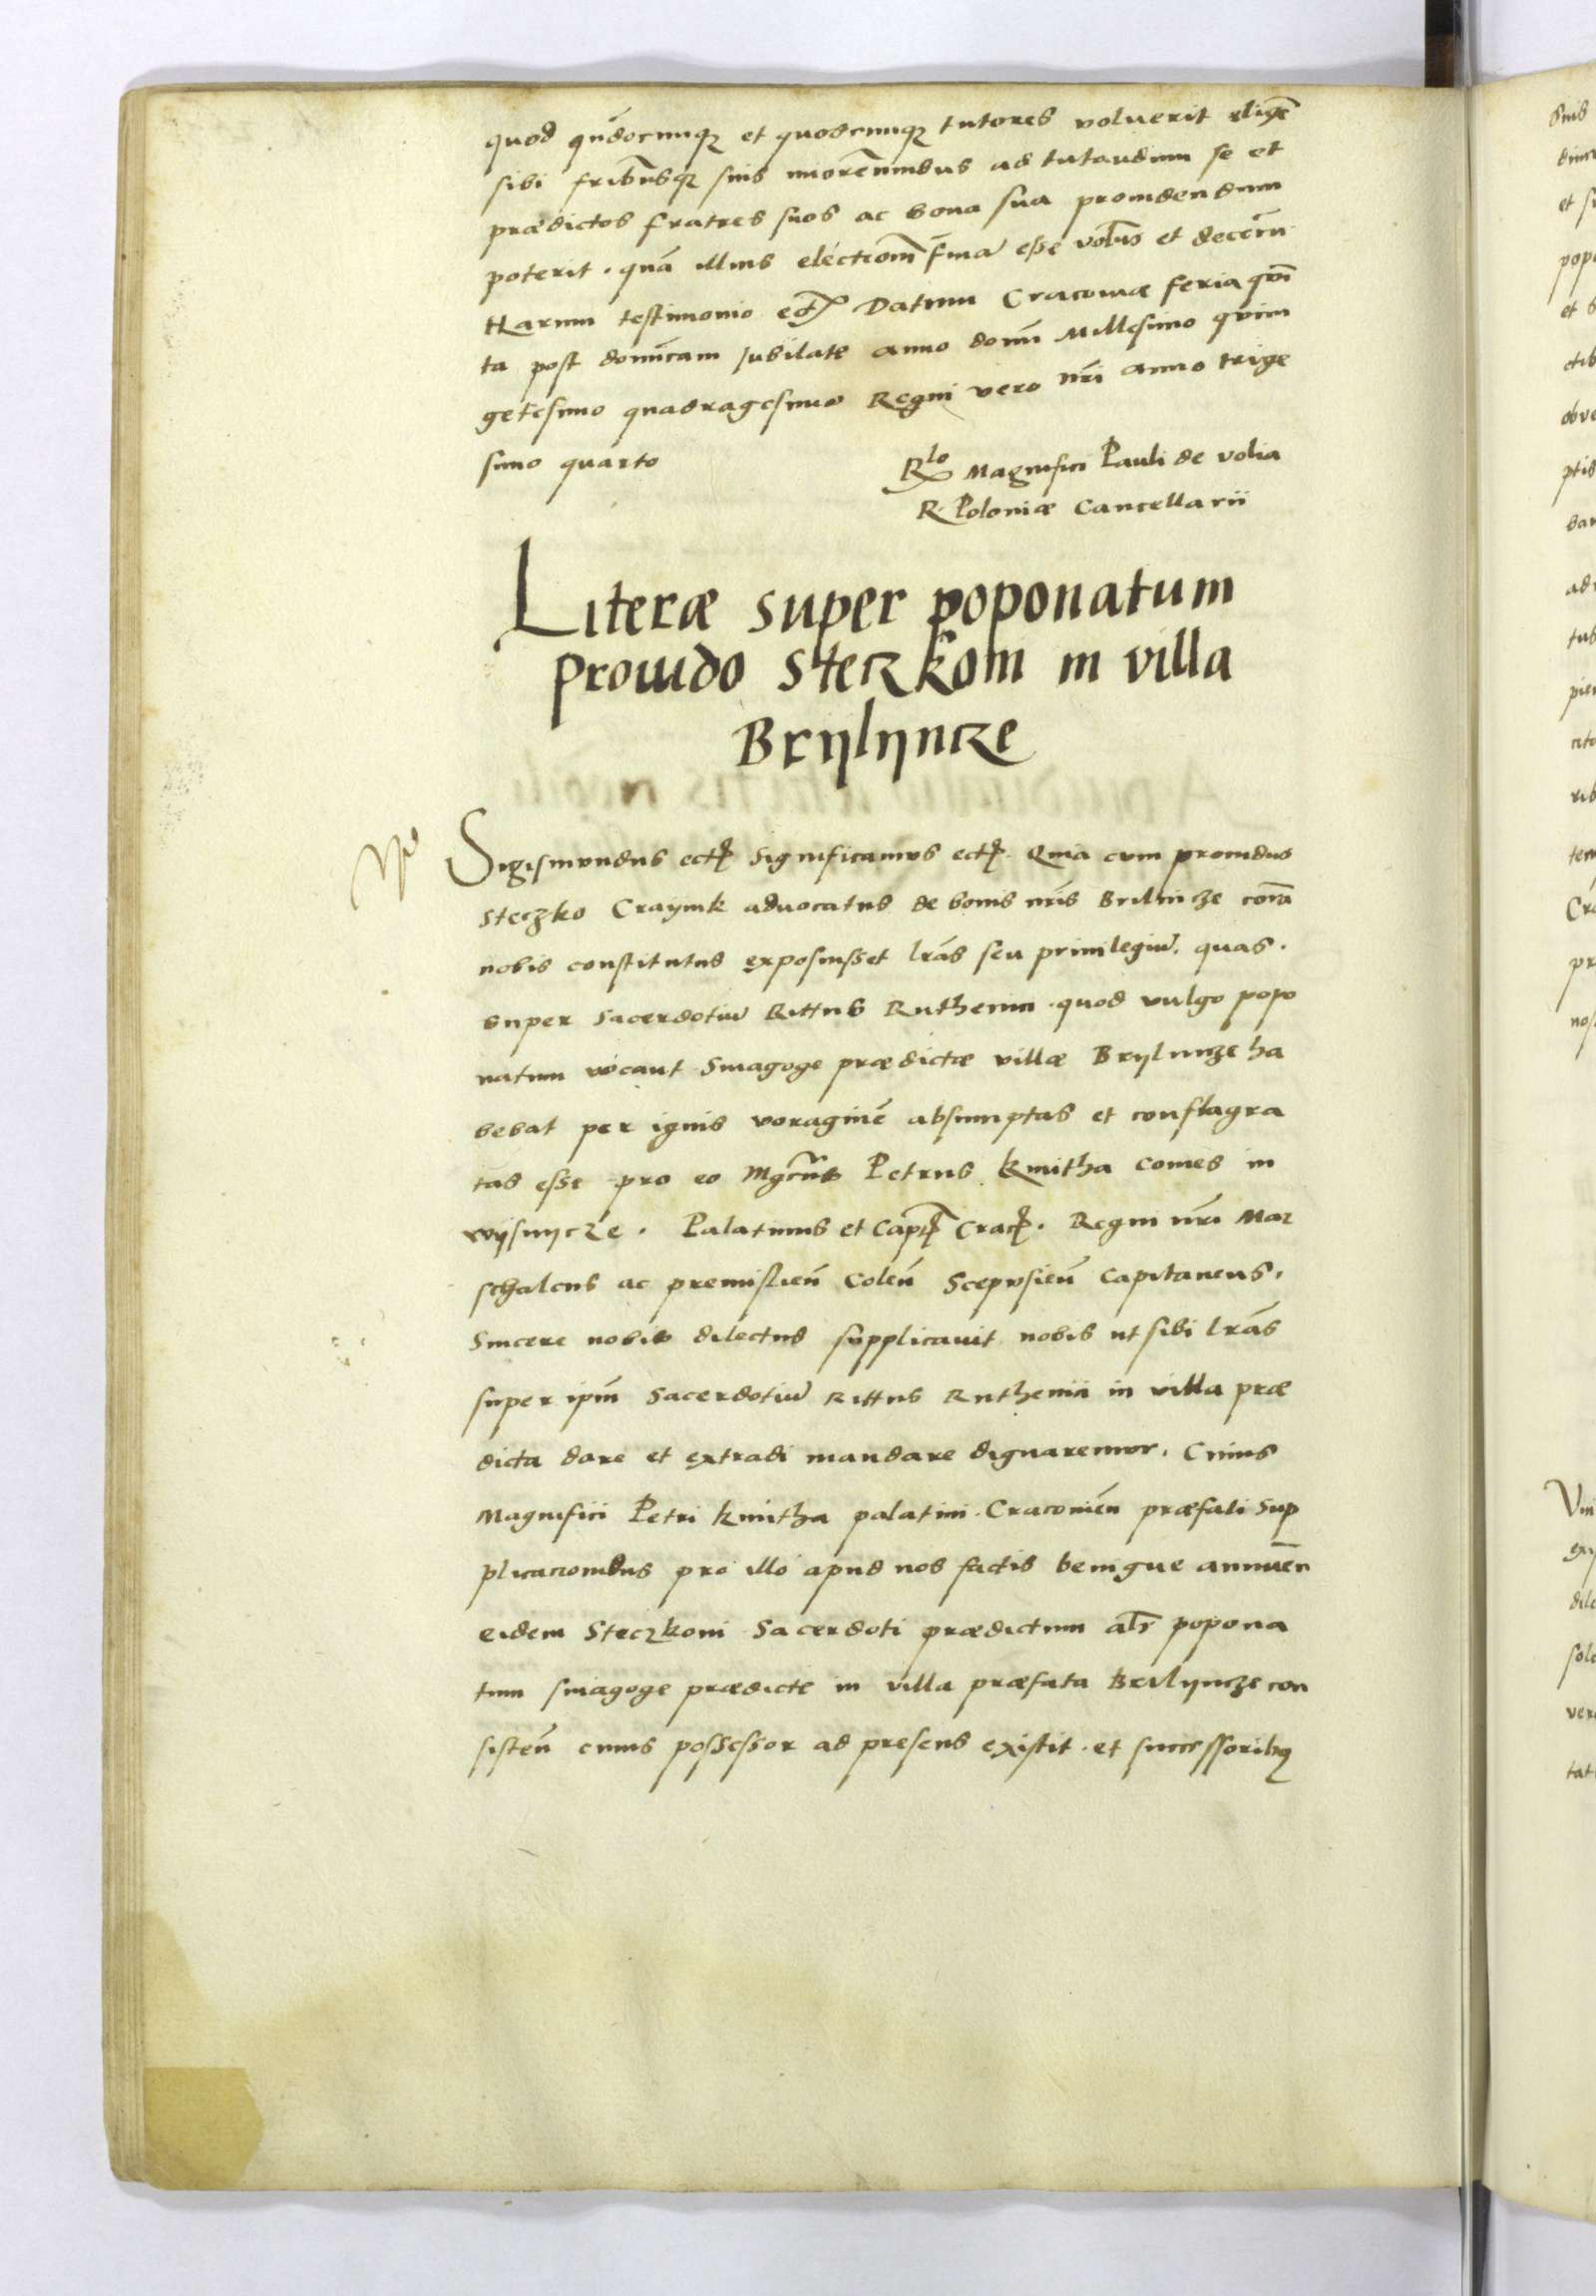 quod quādocunqȝ et quoscunqȝ tutores voluerit eligē
sibi fribusqȝ suis miorēnnibus ad tutandum se et
prædictos fratres suos ac bona sua prouidendum
poterit. quā illius electionē firmā esse volūs et decerñ
Harum testimonio ect Datum Cracouiæ feria qui
ta post domīcam Jubilate anno domī Millesimo quin
getesimo quadragesimo Regni vero nr̄i anno trige
simo quarto
Rlo Magnifici Pauli de volia
R. Poloniæ Cancellarii
Literæ super poponatum
Prouido Steczkoni in villa
Brÿlÿncze
Sigismundus ect significamus ect. Quia cum prouidus
Steczko Craynik aduocatus de bonis nr̄is Brilincze corā
nobis constitutus exposuisset lr̄as seu priuilegiū. quas.
super sacerdotiū Rittus Ruthenici. quod vulgo popo
natum vocant Sinagoge prædictæ villæ Brÿlincze ha
bebat per ignis voraginē absumptas et conflagra
tas esse pro eo Mgcūs Petrus Kmitha Comes in
wÿsnÿcze. Palatinus et Capt Crac. Regni nr̄i Mar
schalcus ac premislień Coleń Scepusień Capitaneus.
Sincere nobis dilectus supplicauit nobis ut sibi lr̄as
super ipm̄ Sacerdotiū Rittus Ruthenici in villa præ
dicta dare et extradi mandare dignaremur. Cuius
Magnifici Petri Kmitha palatini. Cracouień præfati Sup
plicacionibus pro illo apud nos factis benigne annueń
eidem Steczkoni Sacerdoti prædictum al̄s popona
tum sinagoge prædicte in villa præfata Brilÿncze con
sisteń cuius possessor ad presens existit. et successoribȝ